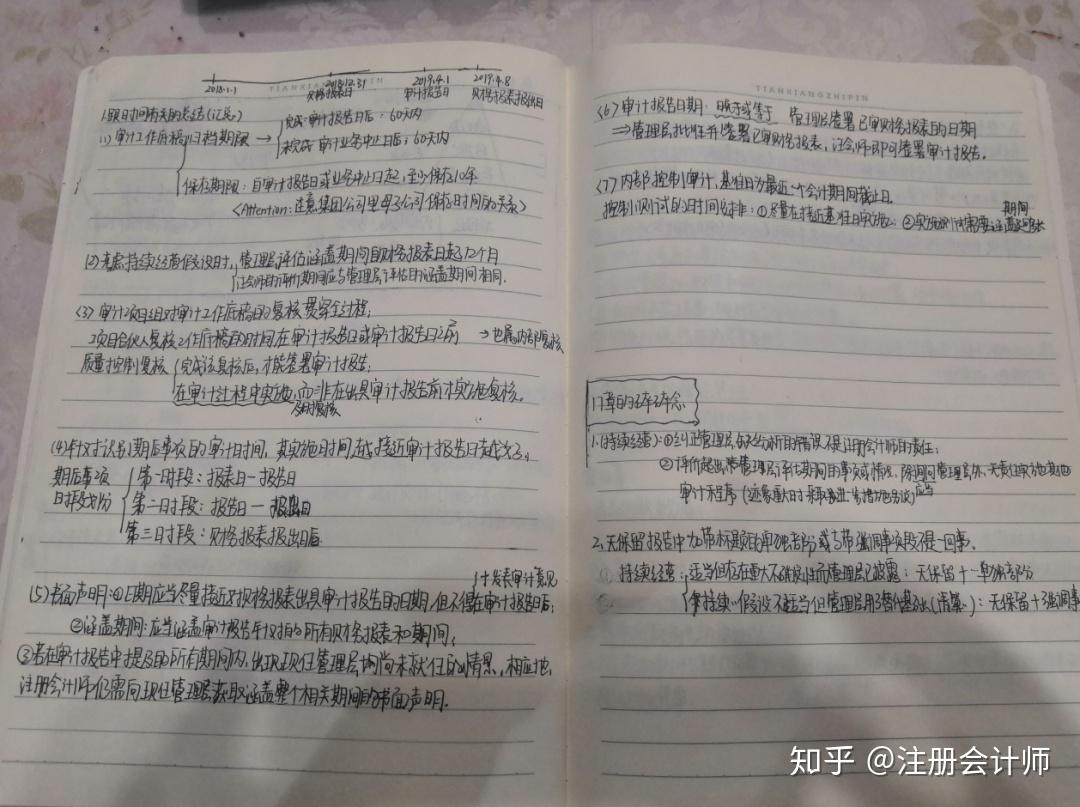 TIANXIANGZHIPIN
2018.1.1 2018.12.31 2019.4.1 2019.4.8
财务报表日 审计报告日 财务报表报出日
1.跟时间有关的总结(汇总)
(1)审计工作底稿归档期限→ 完成:审计报告日后:60天内
未完成:审计业务中止日后:60天内
保存期限:自审计报告日或业务中止日起,至少保存10年
<Attention:注意集团公司里母子公司保存时间的关系>
(2)考虑持续经营假设时,管理层评估涵盖期间自财务报表日起12个月
注会师的评价期间应与管理层评估的涵盖期间相同.
(3)审计项目组对审计工作底稿的复核贯穿全过程;
项目合伙人复核工作底稿的时间在审计报告日或审计报告日之前 →也属内部复核
质量控制复核 完成该复核后,才能签署审计报告;
在审计过程中实施,而非在出具审计报告前才实施复核。
及时复核
(4)针对识别期后事项的审计时间,其实施时间越接近审计报告日越好。
期后事项 第一时段:报表日—报告日
时段划分 第二时段:报告日—报出日
第三时段:财务报表报出日后
+发表审计意见
(5)书面声明:①日期应当尽量接近对财务报表出具审计报告的日期,但不得在审计报告日后;
②涵盖期间:应当涵盖审计报告针对的所有财务报表和期间;
③若在审计报告中提及的所有期间内,出现现任管理层均尚未就任的情景,相应地,
注册会计师仍需向现任管理层获取涵盖整个相关期间的书面声明.
TIANXIANGZHIPIN
(6)审计报告日期:晚于或等于 管理层签署已审财务报表的日期
⇒管理层批准并签署已审财务报表,注会师即可签署审计报告。
(7)内部控制审计,基准日为最近一个会计期间截止日.
期间
控制测试的时间安排:①尽量在接近基准日实施; ②实施测试需要涵盖足够长
17章的碎碎念
1.(持续经营):①纠正管理层缺乏分析的错误不是注册会计师的责任;
②评价超出管理层评估期间的事项或情况,除询问管理层外,无责任实施其他
审计程序
2.无保留报告中加带标题的单独部分或与带强调事项段不是一回事。
① 持续经营:适当但存在重大不确定性而管理层已披露:无保留+单独部分
持续…假设不适当但管理层用替代基础(清算):无保留+强调事
知乎 @注册会计师